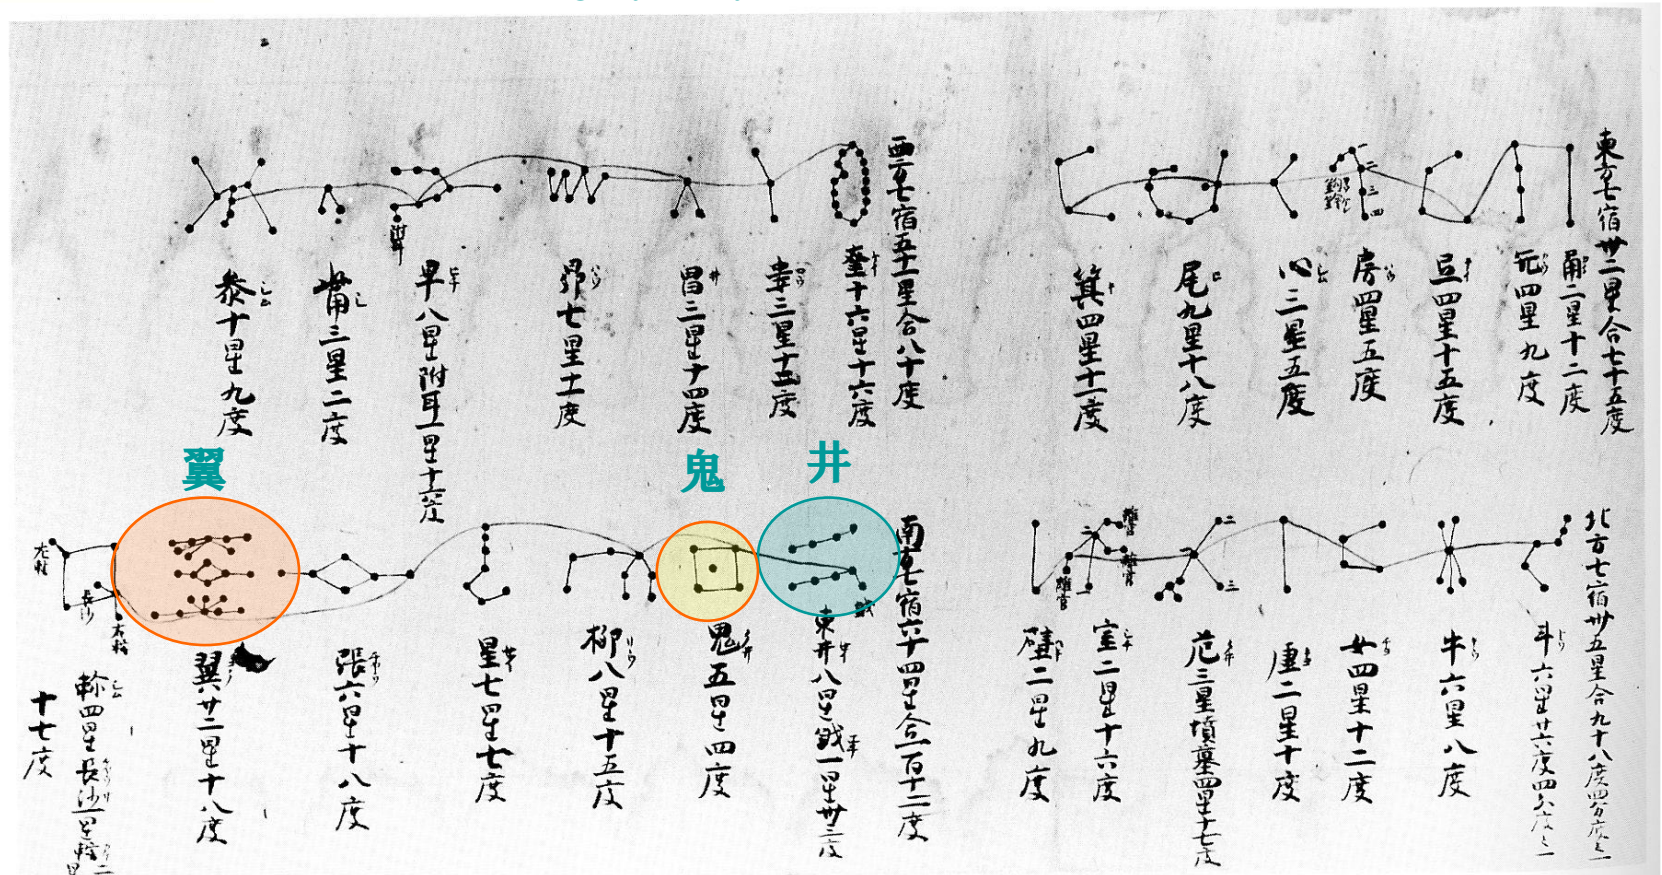 東方七宿卅二星合七十五度
角二星十二度
亢四星九度
氐四星十五度
房四星五度
心三星五度
尾九星十八度
箕四星十一度
西方七宿五十一星合八十度
奎十六星十六度
婁三星十二度
胃三星十四度
昴七星十一度
畢八星附耳一星十六度
觜三星二度
参十星九度
附耳
翼
鬼
井
北方七宿卅五星合九十八度四分度之一
斗六星廿六度四分度之一
牛六星八度
女四星十二度
虚二星十度
危三星墳墓四星十七度
室二星十六度
壁二星九度
離宮
離宮
離宮
南方七宿六十四星合一百十二度
東井八星鉞一星卅三度
鉞
鬼五星四度
柳八星十五度
星七星七度
張六星十八度
翼廿二星十八度
軫四星長沙一星轄二星
十七度
左轄
長沙
右轄